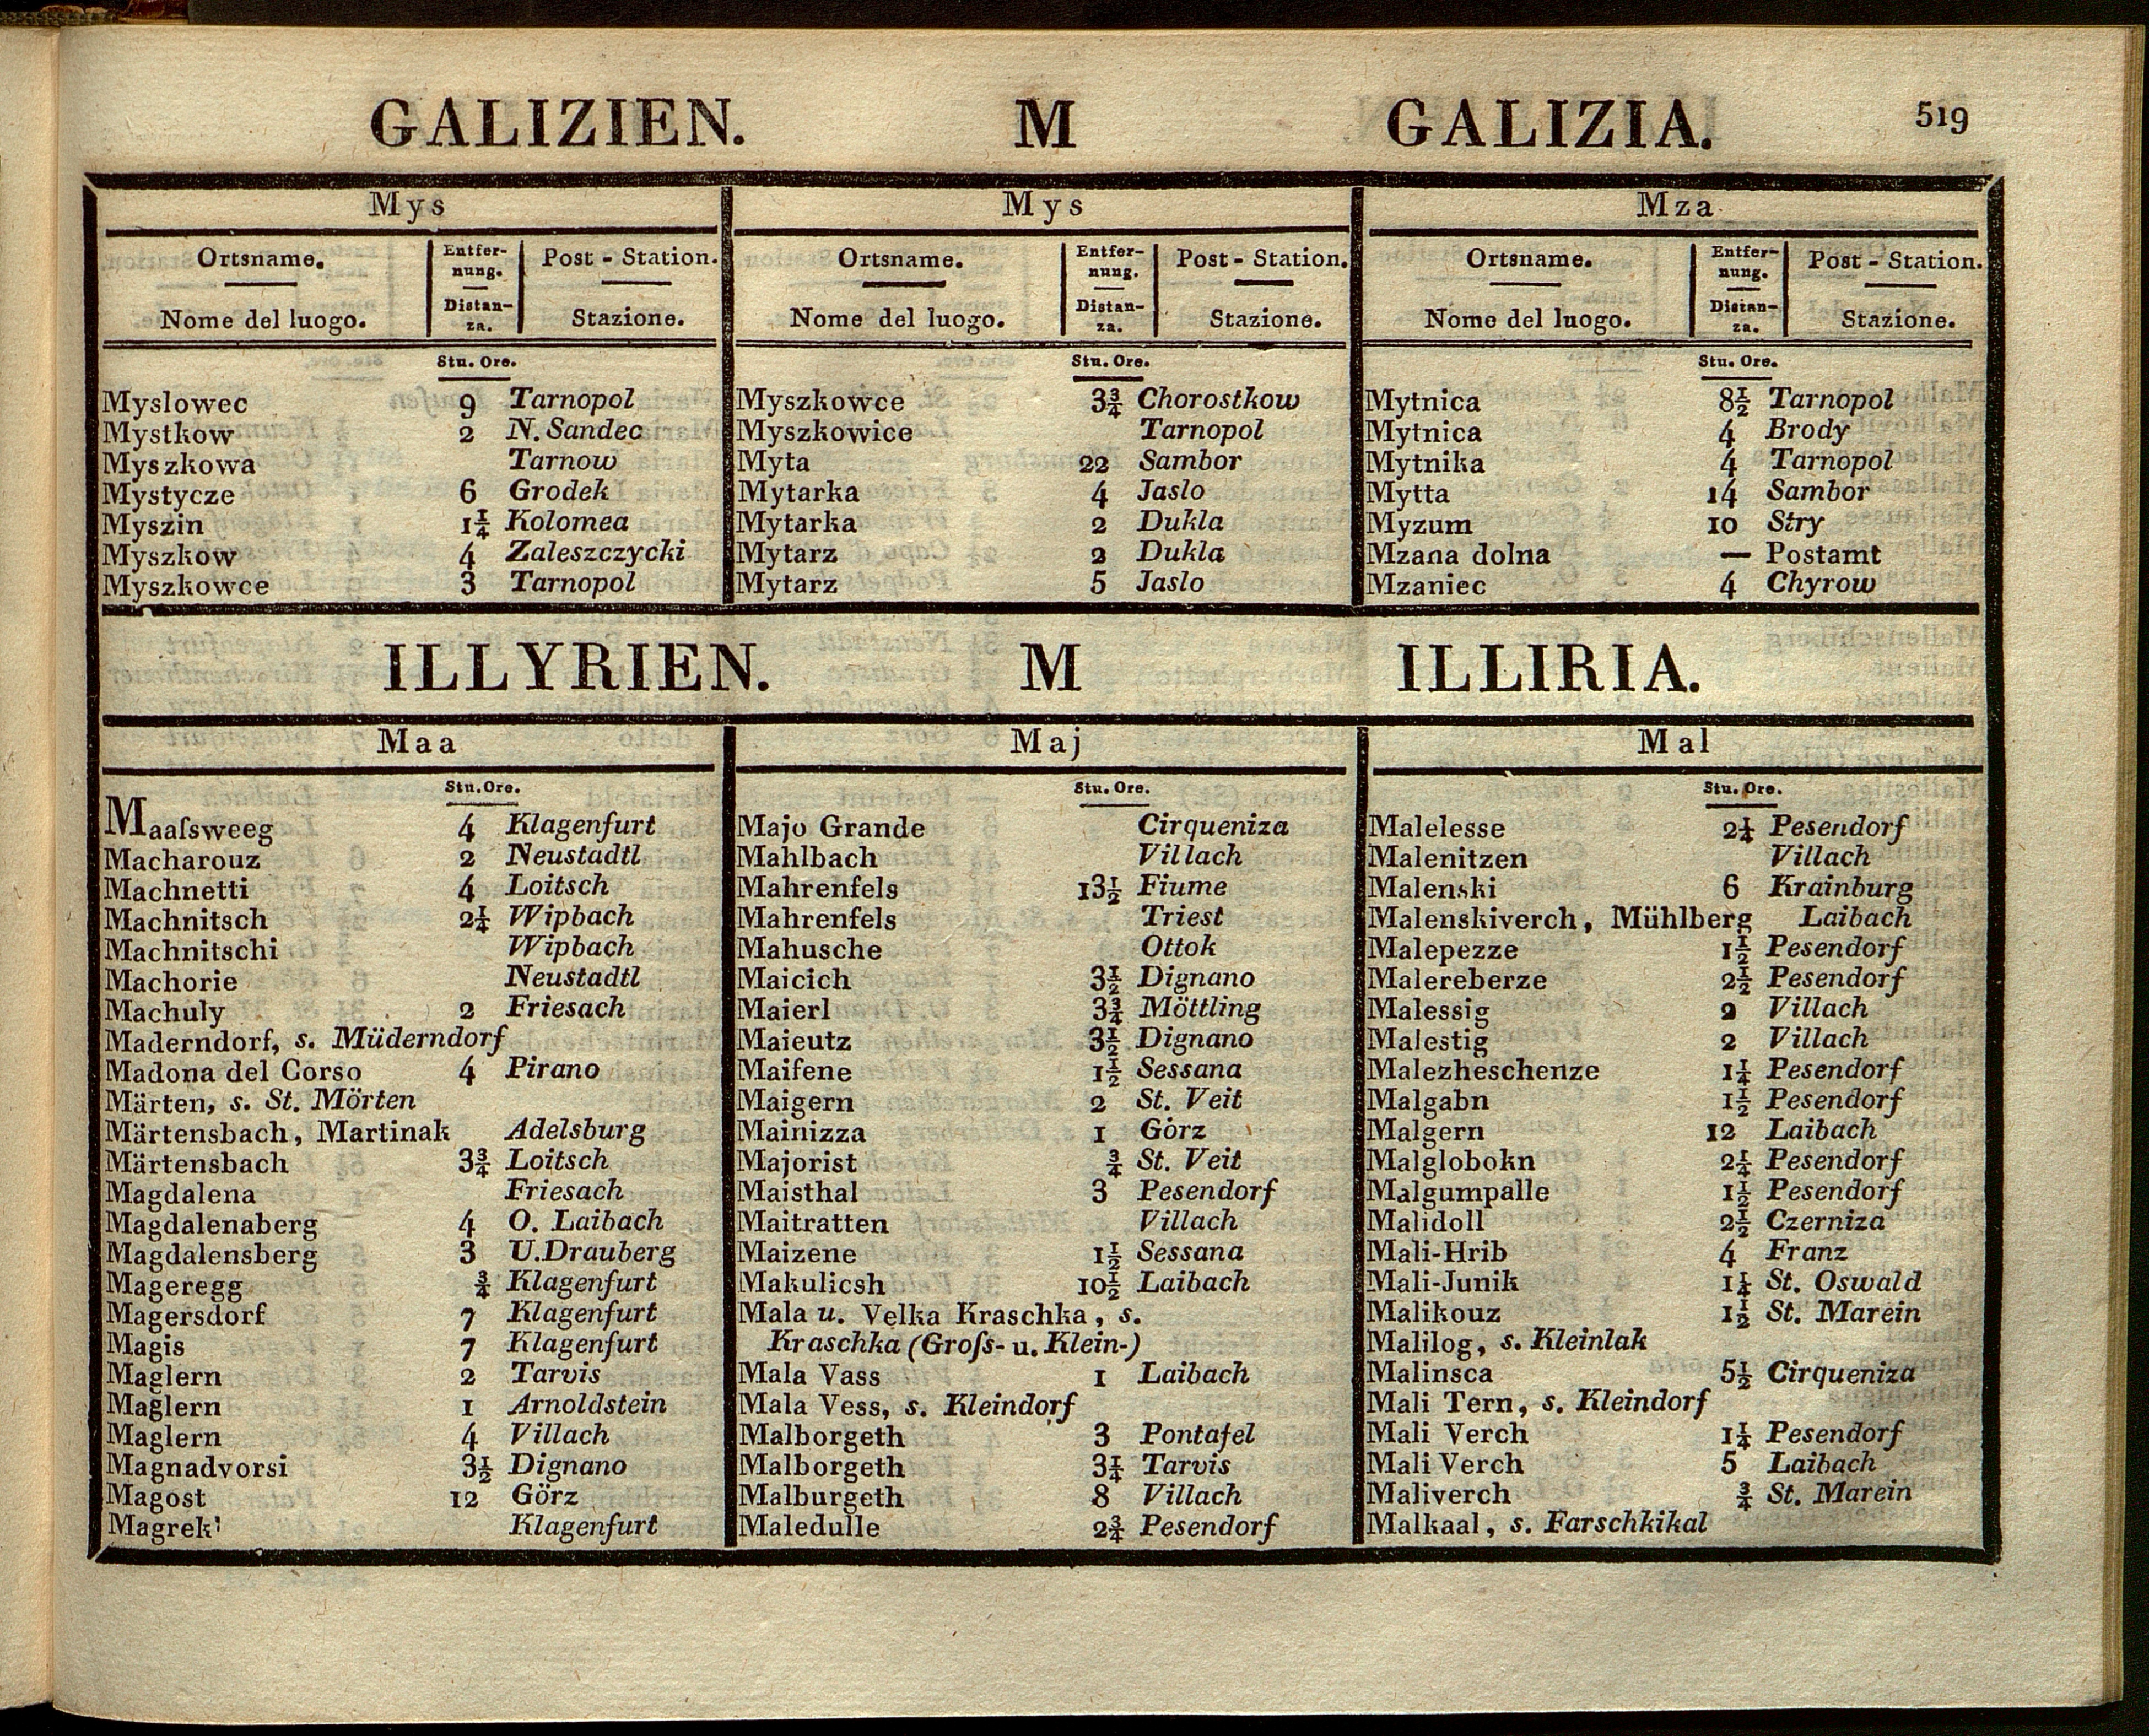 GALIZIEN. M GALIZIA. 519
Mys
Ortsname. Entfer- Post - Station.
nung.
Nome del luogo. Distan- Stazione.
za.
Stu. Ore.
Myslowec 9 Tarnopol
Mystkow 2 N. Sandec
Myszkowa Tarnow
Mystycze 6 Grodek
Myszin 1¼ Kolomea
Myszkow 4 Zaleszczycki
Myszkowce 3 Tarnopol
Mys
Ortsname. Entfer- Post - Station.
nung.
Nome del luogo. Distan- Stazione.
za.
Stu. Ore.
Myszkowce 3¾ Chorostkow
Myszkowice Tarnopol
Myta 22 Sambor
Mytarka 4 Jaslo
Mytarka 2 Dukla
Mytarz 2 Dukla
Mytarz 5 Jaslo
Mza
Ortsname. Entfer- Post - Station.
nung.
Nome del luogo. Distan- Stazione.
za.
Stu. Ore.
Mytnica 8½ Tarnopol
Mytnica 4 Brody
Mytnika 4 Tarnopol
Mytta 14 Sambor
Myzum 10 Stry
Mzana dolna — Postamt
Mzaniec 4 Chyrow
ILLYRIEN. M ILLIRIA.
Maa
Stu. Ore.
Maaſsweeg 4 Klagenfurt
Macharouz 2 Neustadtl
Machnetti 4 Loitsch
Machnitsch 2¼ Wipbach
Machnitschi Wipbach
Machorie Neustadtl
Machuly 2 Friesach
Maderndorf, s. Müderndorf
Madona del Corso 4 Pirano
Märten, s. St. Mörten
Märtensbach, Martinak Adelsburg
Märtensbach 3¾ Loitsch
Magdalena Friesach
Magdalenaberg 4 O. Laibach
Magdalensberg 3 U. Drauberg
Mageregg ¾ Klagenfurt
Magersdorf 7 Klagenfurt
Magis 7 Klagenfurt
Maglern 2 Tarvis
Maglern 1 Arnoldstein
Maglern 4 Villach
Magnadvorsi 3½ Dignano
Magost 12 Görz
Magrek' Klagenfurt
Maj
Stu. Ore.
Majo Grande Cirqueniza
Mahlbach Villach
Mahrenfels 13½ Fiume
Mahrenfels Triest
Mahusche Ottok
Maicich 3½ Dignano
Maierl 3¾ Möttling
Maieutz 3½ Dignano
Maifene 1½ Sessana
Maigern 2 St. Veit
Mainizza 1 Görz
Majorist ¾ St. Veit
Maisthal 3 Pesendorf
Maitratten Villach
Maizene 1½ Sessana
Makulicsh 10½ Laibach
Mala u. Velka Kraschka, s.
Kraschka (Groſs- u. Klein-)
Mala Vass 1 Laibach
Mala Vess, s. Kleindorf
Malborgeth 3 Pontafel
Malborgeth 3¼ Tarvis
Malburgeth 8 Villach
Maledulle 2¾ Pesendorf
Mal
Stu. Ore.
Malelesse 2¼ Pesendorf
Malenitzen Villach
Malenski 6 Krainburg
Malenskiverch, Mühlberg Laibach
Malepezze 1½ Pesendorf
Malereberze 2½ Pesendorf
Malessig 2 Villach
Malestig 2 Villach
Malezheschenze 1¼ Pesendorf
Malgabn 1½ Pesendorf
Malgern 12 Laibach
Malglobokn 2¼ Pesendorf
Malgumpalle 1½ Pesendorf
Malidoll 2½ Czerniza
Mali-Hrib 4 Franz
Mali-Junik 1¼ St. Oswald
Malikouz 1½ St. Marein
Malilog, s. Kleinlak
Malinsca 5½ Cirqueniza
Mali Tern, s. Kleindorf
Mali Verch 1¼ Pesendorf
Mali Verch 5 Laibach
Maliverch ¾ St. Marein
Malkaal, s. Farschkikal